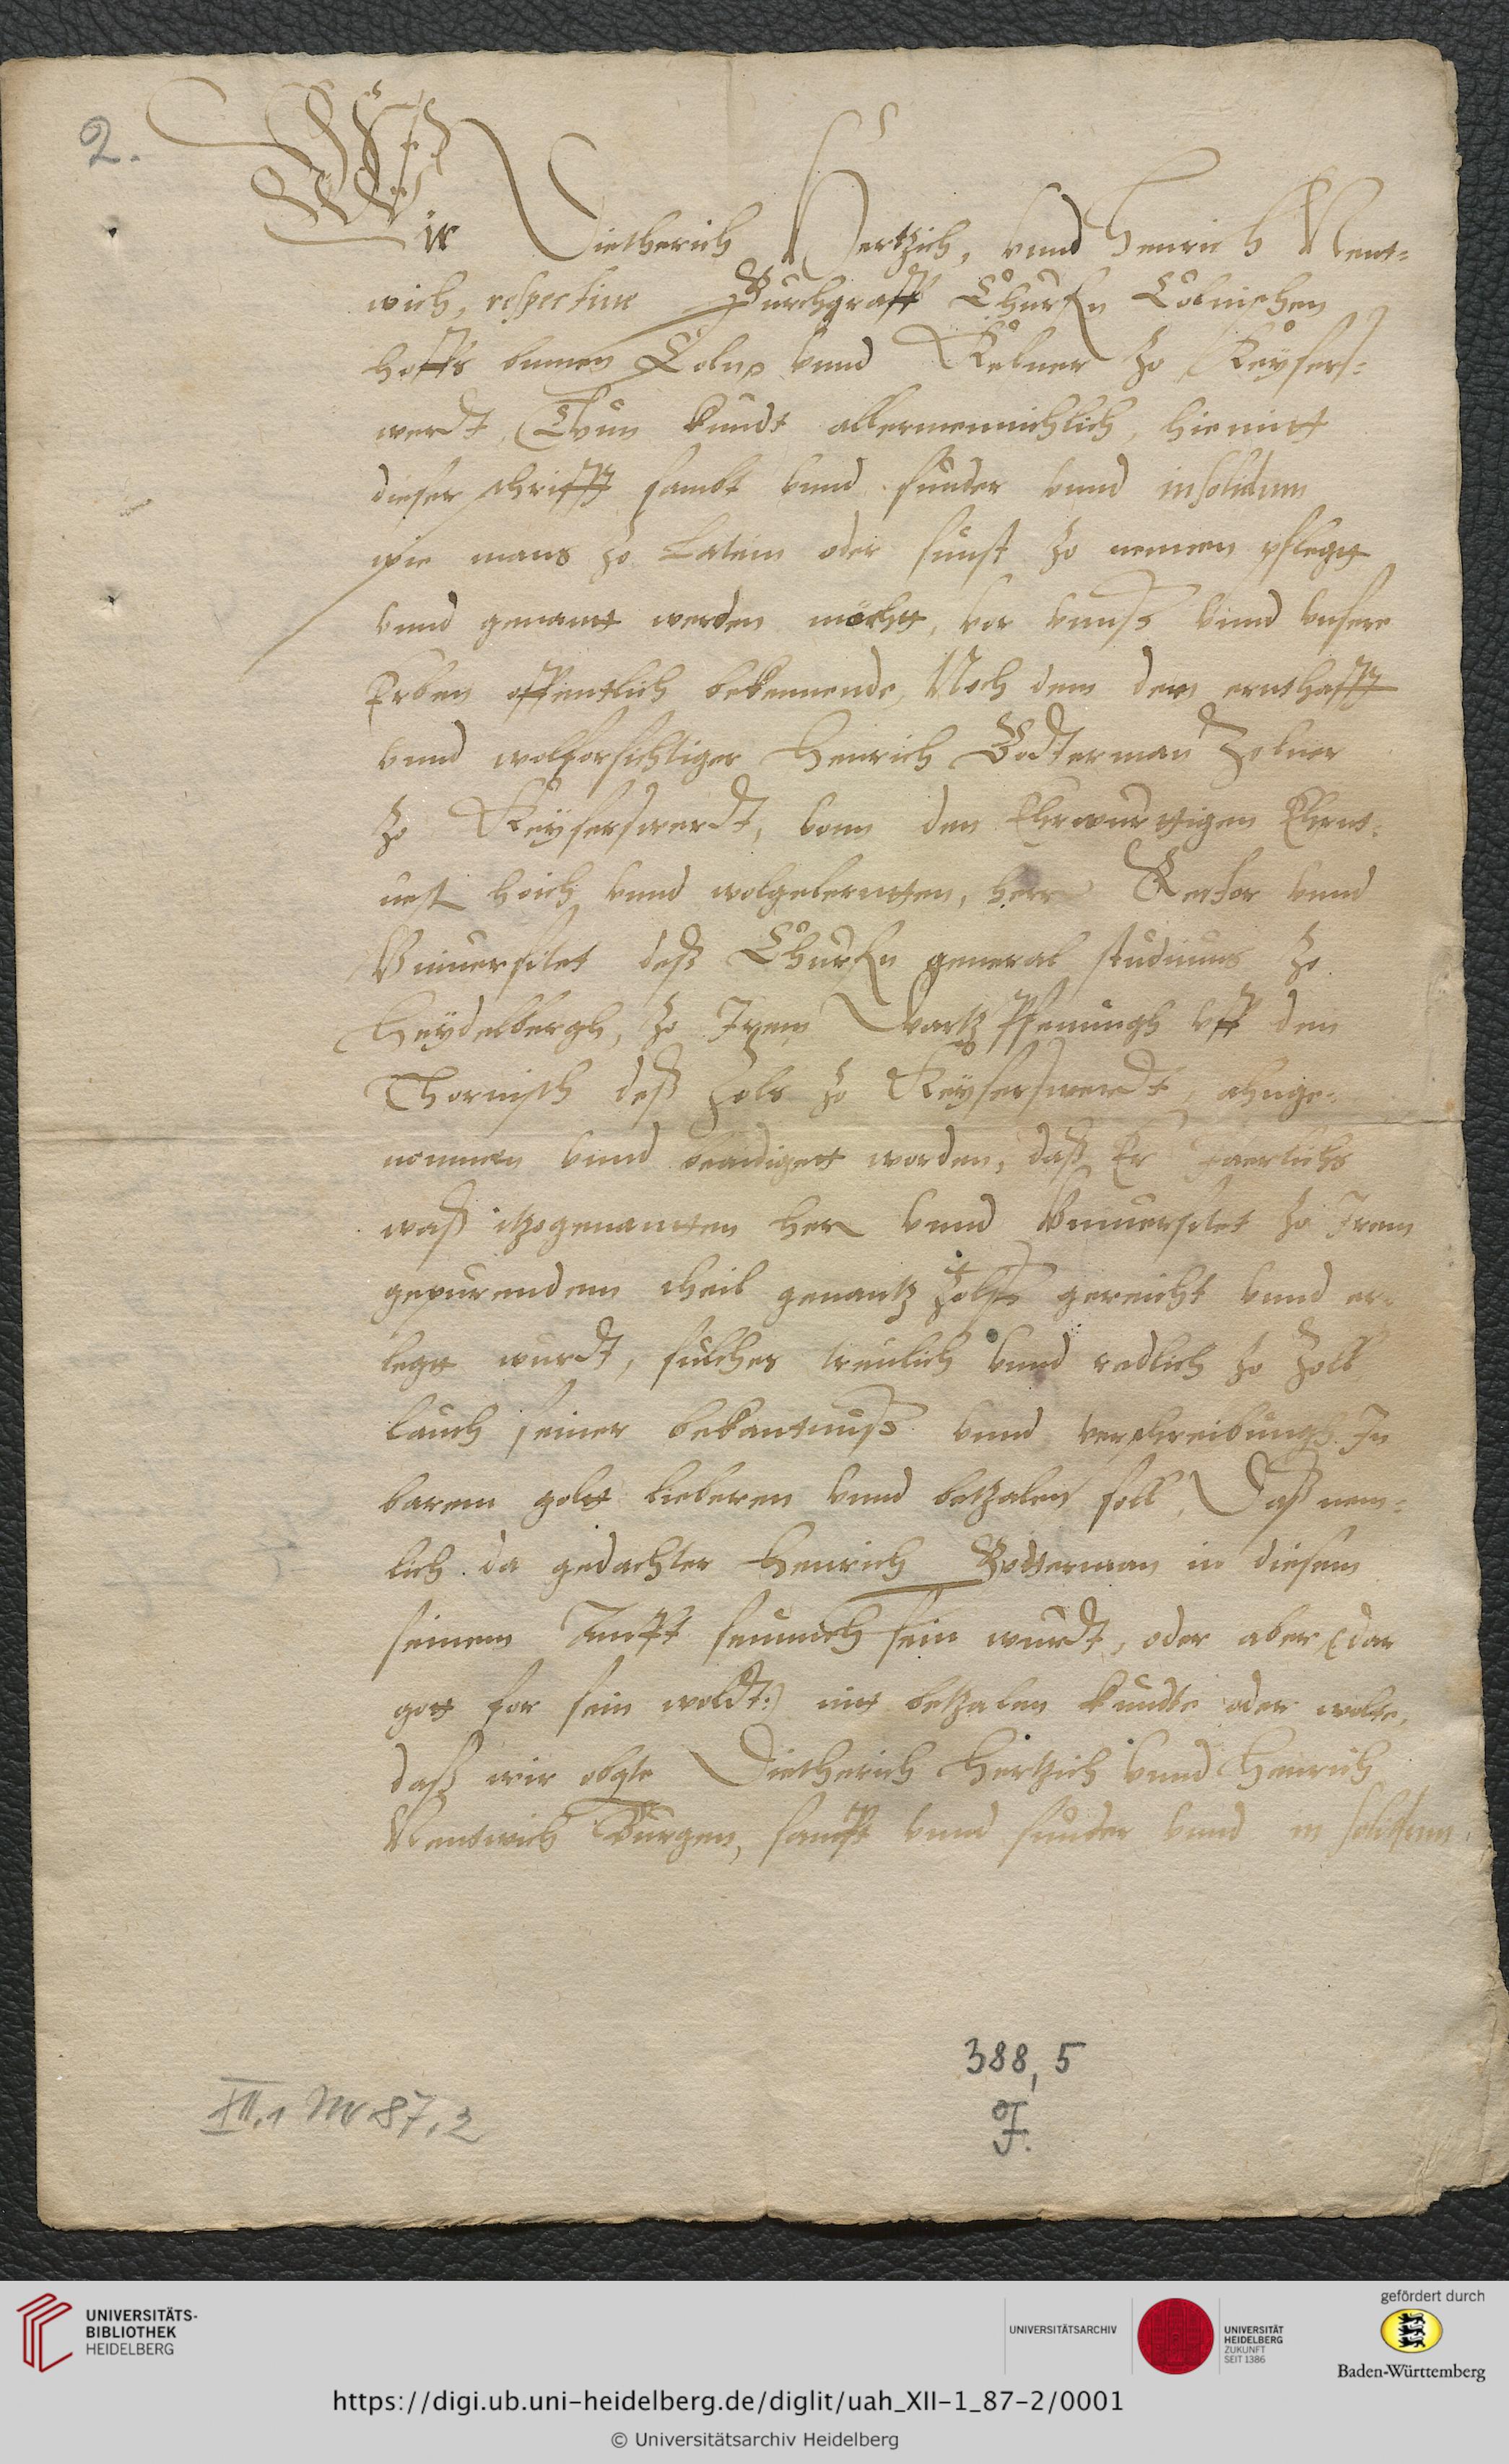 2.
Wir Dietherich Hertzich, vnnd Henrich Nent-
wich, respectiue Burchgraff Churfn Cölnischen
hoffs binnen Coln, vnnd Kelner zo Keysers-
werdt, Thun kundt allermennichlich, hiemitt
dieser schrifft sambt vnnd sunder vnnd insolidum
wie mans zo Latein oder sunst zo nennen pflegtt
vnnd genantt werden möchtt, vor vunß vnnd vnsere
Erben offentlich bekennende, Noch dem der ernthafft
vnnd wolforsichtiger Henrich Bodterman Zolner
zo Keyserswerdt, vonn den Ehrwurttigen Ehrnt-
uest hoich vnnd wolgelerntten, herr Rector vnnd
Vniuersitet deß Churfn general studiums zo
Heydelbergh, zo Irem Wartz Pfenningh vff den
Thornisch deß Zols zo Keyserswerdt, ahnge-
nommen vnnd beandigett worden, daß Er Jaerlichs
waß itzogenantten hern vnnd Vniuersitet zo Irem
gepurendem theil genantz Zolß gereicht vnnd er-
legtt wurdt, sulches treulich vnnd redlich zo Zoll
lauth seiner bekantnuß vnnd verschreibungh In
barem geltt lieberen vnnd betzalen soll, Daß nem-
lich da gedachter Henrich Bodterman in diesem
seinem Ampt seumich sein wurdt, oder aber (dar
gott for sein woldt:) nit betzalen kundte oder wolte,
daß wir obgte Dietherich Hertzich vnnd Henrich
Nentwich Burgen, sampt vnnd sunder vnnd in solidum
388,5
F.
XII,1 Nr 87,2
UNIVERSITÄTS-
BIBLIOTHEK
HEIDELBERG
UNIVERSITÄTSARCHIV
UNIVERSITÄT
HEIDELBERG
ZUKUNFT
SEIT 1386
gefördert durch
Baden-Württemberg
https://digi.ub.uni-heidelberg.de/diglit/uah_XII-1_87-2/0001
© Universitätsarchiv Heidelberg